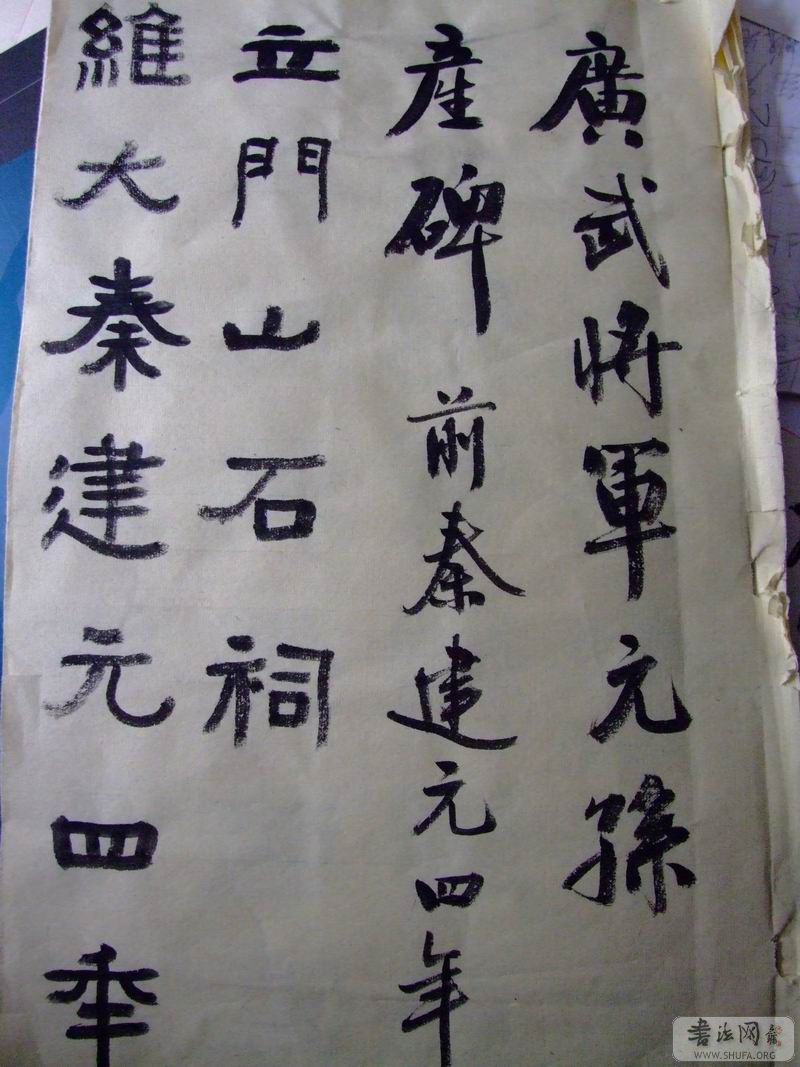 廣武將軍元孫
産碑 前秦建元四年
立門山石祠
維大秦建元四年
書法网
WWW.SHUFA.ORG